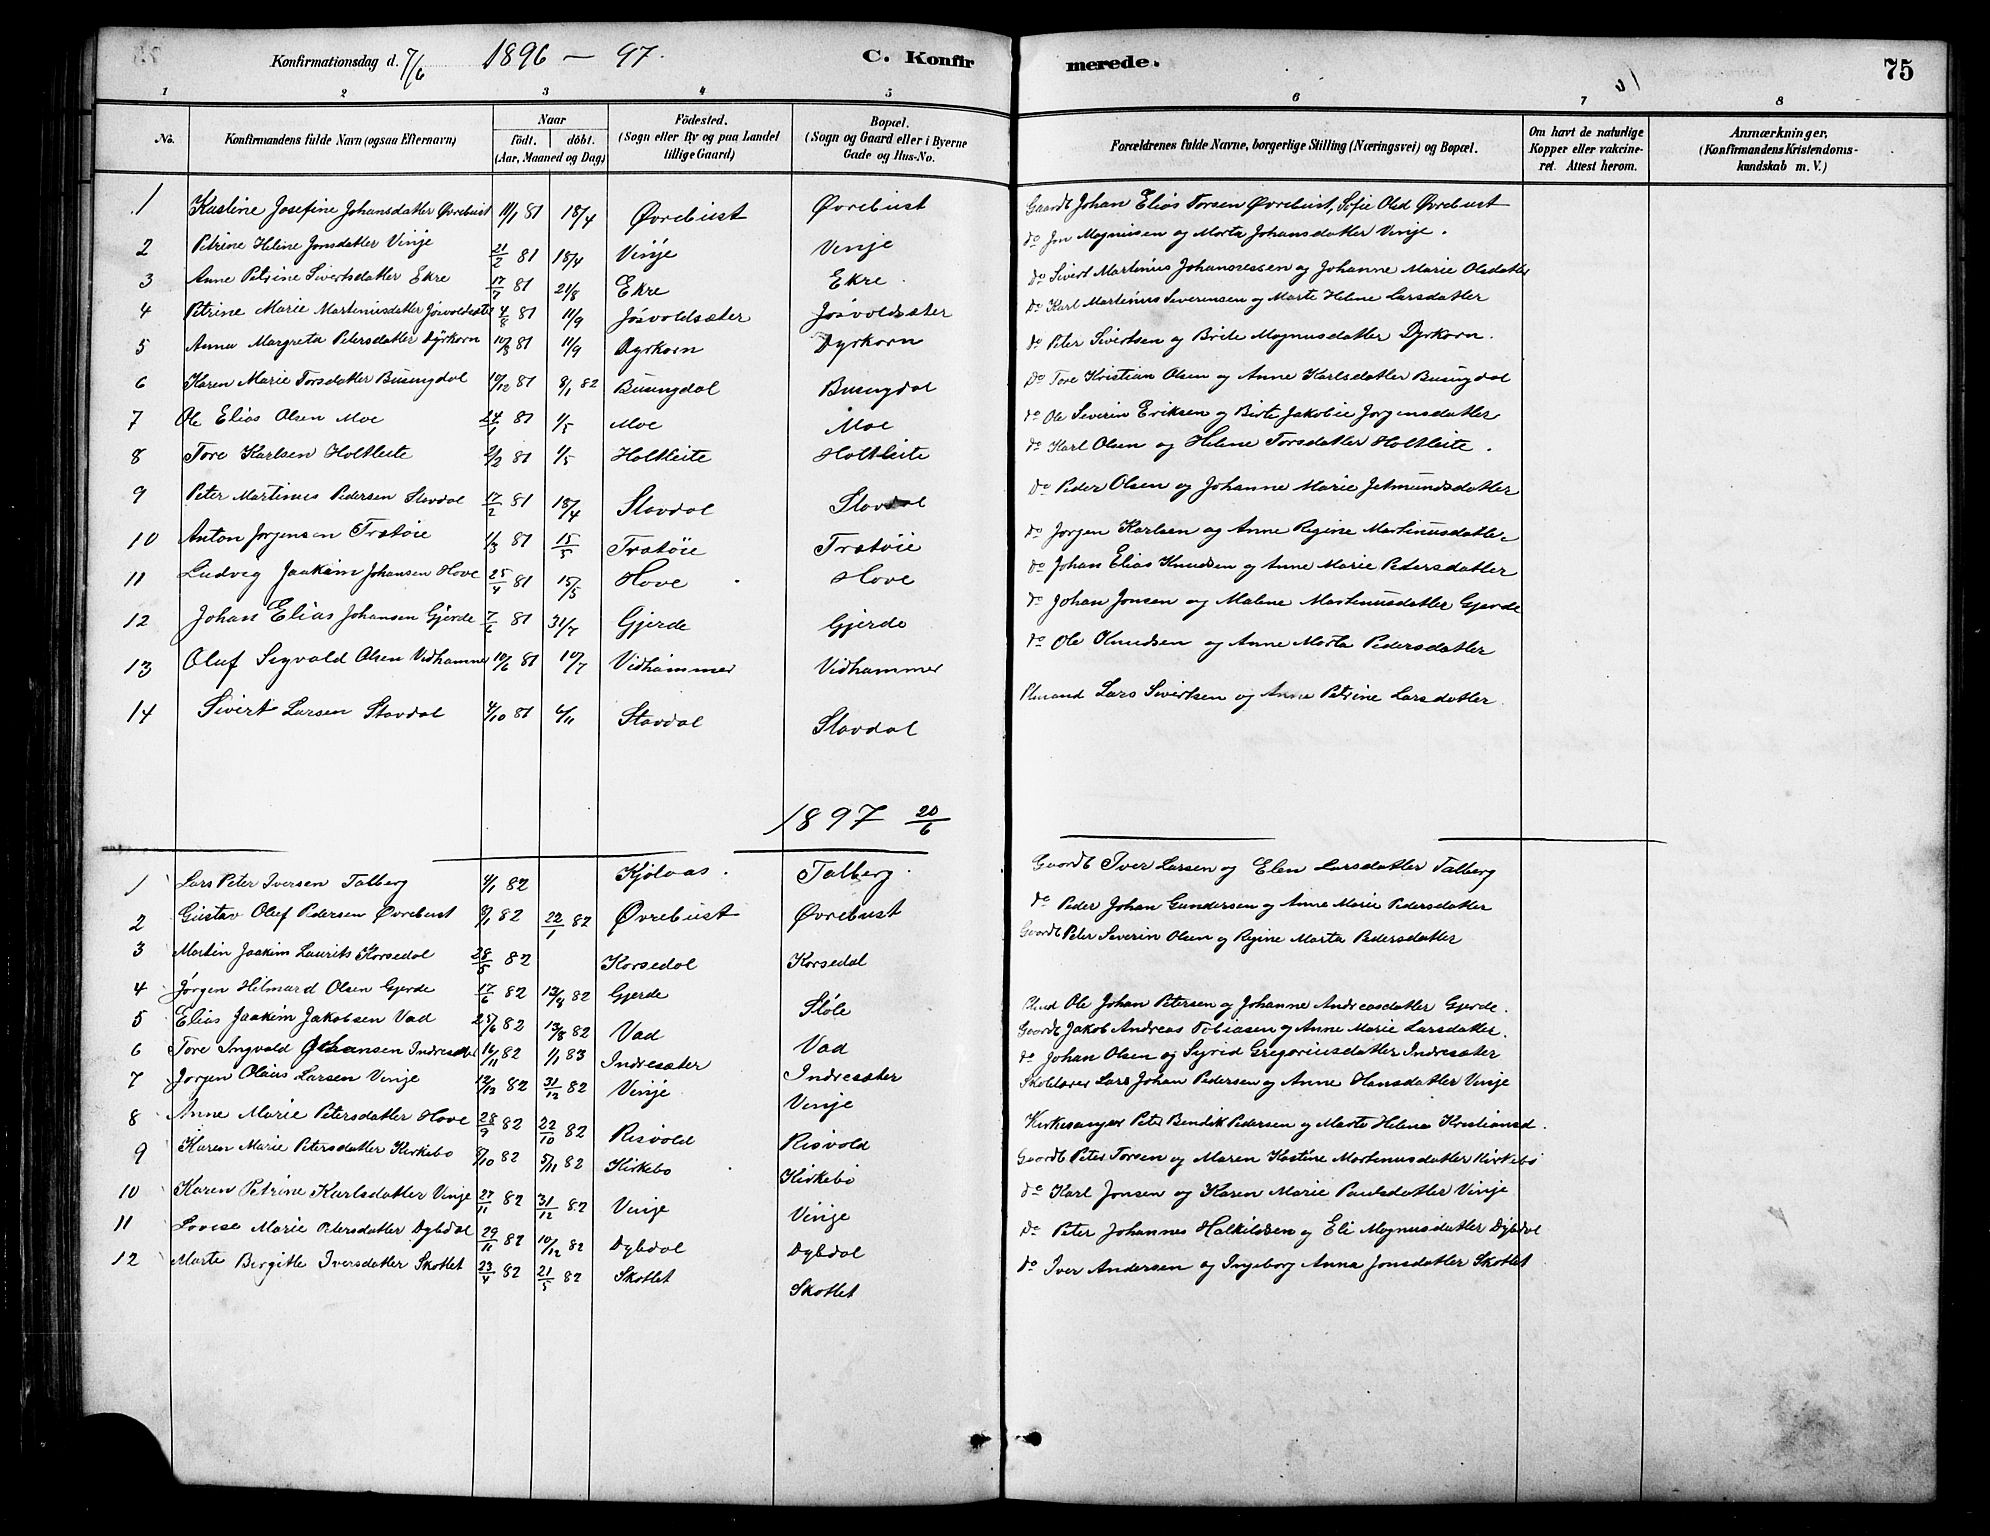 Konfirmationsdag d. 7/6 1896 – 97. C. Konfirmerede. 75
1 2 3 4 5 6 7 8
No. Konfirmandens fulde Navn (ogsaa Efternavn) Naar födt. döbt. (Aar, Maaned og Dag) Födested. (Sogn eller By og paa Landet tillige Gaard) Bopæl. (Sogn og Gaard eller i Byerne Gade og Hus-No. Forældrenes fulde Navne, borgerlige Stilling (Næringsvei) og Bopæl. Om havt de naturlige Kopper eller vakcineret. Attest herom. Anmærkninger, (Konfirmandens Kristendomskundskab m. V.)
1 Kastine Josefine Johansdatter Øvrebust 11/1 81 18/4 Øvrebust Øvrebust Gaardb Johan Elias Torsen Øvrebust, Sofie Olsd Øvrebust
2 Petrine Heline Jonsdatter Vinje 21/2 81 18/4 Vinje Vinje do Jon Magnusen og Marta Johansdatter Vinje.
3 Anne Petrine Sivertsdatter Ekre 17/7 81 21/8 Ekre Ekre. do Sivert Martinus Johannessen og Johanne Marie Olsdatter
4 Petrine Marie Martinusdatter Jösvoldsæter 4/8 81 11/9 Jösvoldsæter Jösvoldsæter do Karl Martinus Severinsen og Marte Helene Larsdatter
5 Anna Margreta Petersdatter Dyrkorn 10/8 81 11/9 Dyrkorn Dyrkorn do Peter Sivertsen og Brite Magnusdatter Dyrkorn.
6 Karen Marie Torsdatter Busungdal 10/12 81 8/1 82 Busungdal Busungdal do Tore Kristian Olsen og Anne Karlsdatter Busungdal
7 Ole Elias Olsen Moe 24/1 81 1/5 Moe Moe do Ole Severin Eriksen og Birte Jakobie Jorgensdatter
8 Tore Karlsen Holtleite 2/2 81 1/5 Holtleite Holtleite do Karl Olsen og Helene Torsdatter Holtleite.
9 Peter Martinus Pedersen Stavdal 17/2 81 18/4 Stavdal Stavdal do Peder Olsen og Johanne Marie Jetmundsdatter
10 Anton Jorgensen Trøtøie 1/3 81 15/5 Trøtøie Trøtøie do Jorgen Karlsen og Anne Regine Martinusdatter
11 Ludvig Jaakim Johansen Hove 25/4 81 15/5 Hove Hove do Johan Elias Knudsen og Anne Marie Pedersdatter
12 Johan Elias Johansen Gjerde 7/6 81 31/7 Gjerde Gjerde do Johan Jonsen og Malene Martinusdatter Gjerde
13 Oluf Sigvald Olsen Vidhammer 10/6 81 10/7 Vidhammer Vidhammer do Ole Knudsen og Anne Marta Pedersdatter
14 Sivert Larsen Stavdal 4/10 81 6/11 Stavdal Stavdal Plmand Lars Sivertsen og Anne Petrine Larsdatter.
1897 20/6
1 Lars Peter Iversen Talberg 4/1 82 Kjölaas. Talberg. Gaardb Iver Larsen og Elen Larsdatter Talberg
2 Gustav Oluf Pedersen Øvrebust 9/1 82 22/1 82 Øvrebust Øvrebust do Peder Johan Gundersen og Anne Marie Pedersdatter
3 Martin Jaakim Laurits Korsedal 28/5 82 Korsedal Korsedal Gaardb Peter Severin Olsen og Regine Marta Pedersdatter
4 Jörgen Hilmard Olsen Gjerde 17/6 82 13/8 82 Gjerde Støle Plmd Ole Johan Petersen og Johanne Andreasdatter Gjerde.
5 Elias Jaakim Jakobsen Vad 25/6 82 13/8 82 Vad Vad Gaardb Jakob Andreas Tobiasen og Anne Marie Larsdatter.
6 Tore Ingvald Johansen Indresæter 16/11 82 1/1 83 Indresæter Indresæter do Johan Olsen og Syrid Gregoriusdatter Indresæter
7 Jorgen Olaus Larsen Vinje 12/12 82 31/12 82 Vinje Vinje Skolelærer Lars Johan Pedersen og Anne Hansdatter Vinje
8 Anne Marie Petersdatter Hove 28/9 82 22/10 82 Risvold Risvold Kirkesanger Peter Bendik Pedersen og Marte Helena Kristiansd.
9 Karen Marie Petersdatter Kirkebo 8/10 82 5/11 82 Kirkebo Kirkebo Gaardb Peter Torsen og Maren Kastine Martinusdatter Kirkebö
10 Karen Petrine Karlsdatter Vinje 27/11 82 31/12 82 Vinje Vinje do Karl Jonsen og Karen Marie Paulsdatter Vinje
11 Lovise Marie Petersdatter Dybdal 29/11 82 10/12 82 Dybdal Dybdal do Peter Johannes Halkildsen og Eli Magnusdatter Dybdal
12 Marte Birgitte Iversdatter Skotlet 23/4 82 21/5 82 Skotlet Skotlet do Iver Andersen og Ingeborg Anna Jonsdatter Skotlet